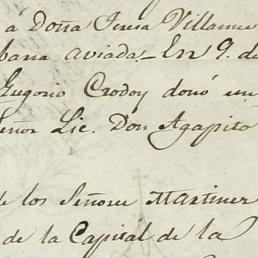 á Doña Teresa Villanue
bana aviada_ En 9. de
Gregorio Crodoy donó un
eñor Lic. Don Agapito
e los Señores Martinez
de la Capital de la